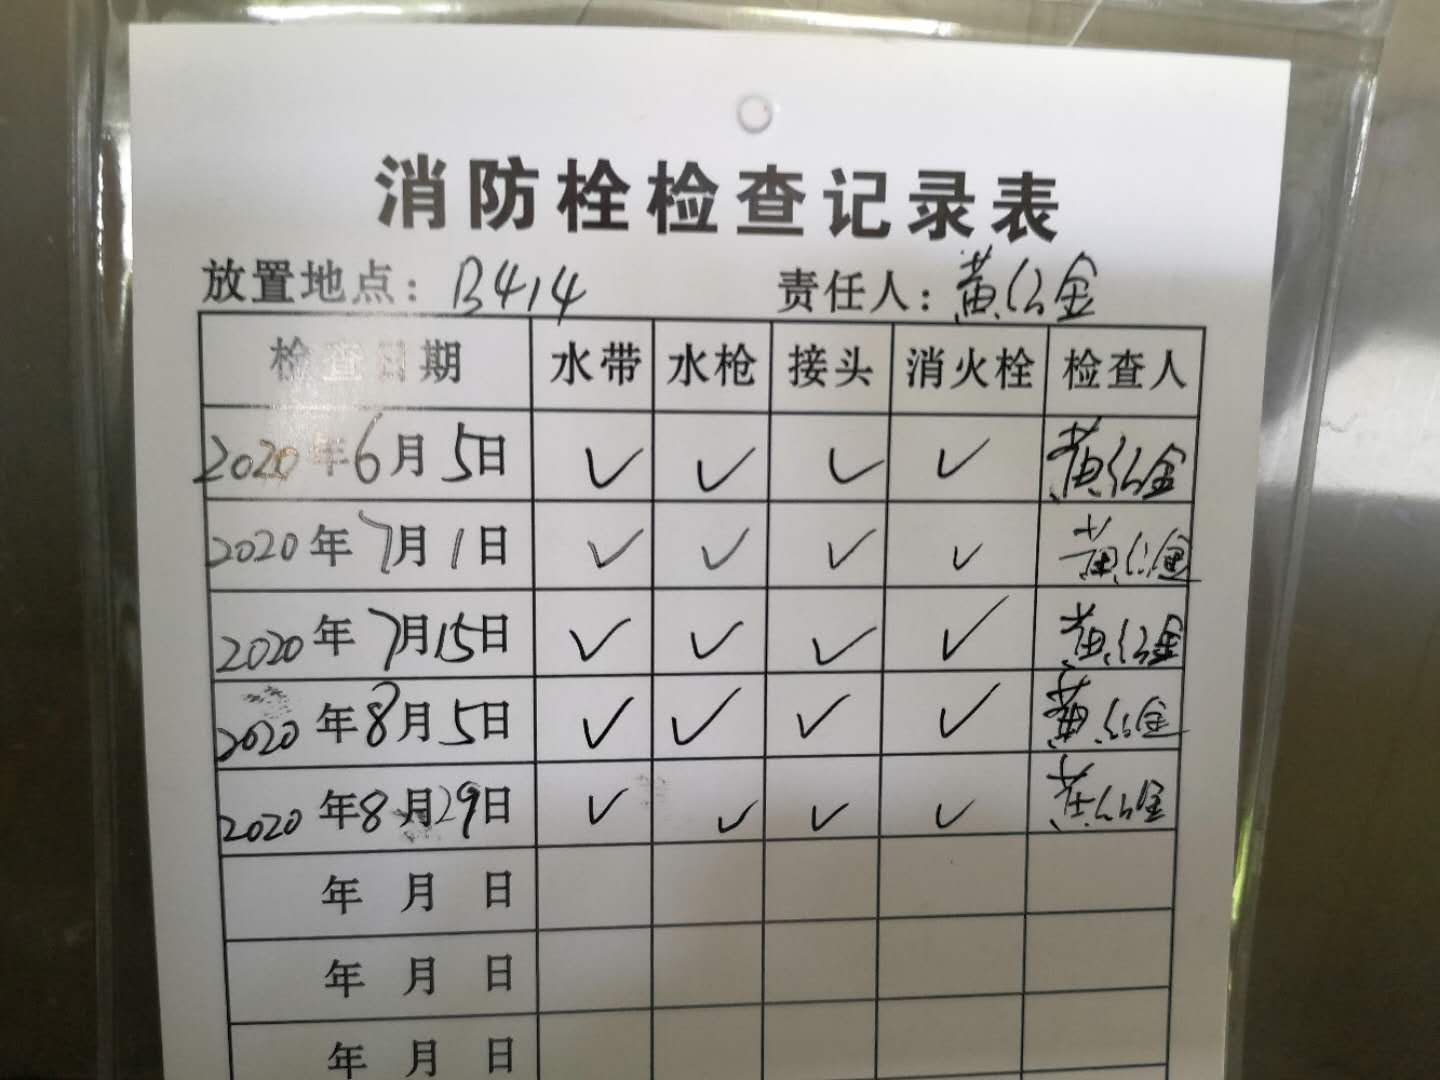 消防栓检查记录表
放置地点：B414 责任人：黄公金
检查日期 水带 水枪 接头 消火栓 检查人
2020年6月5日 ✓ ✓ ✓ ✓ 黄公金
2020年7月1日 ✓ ✓ ✓ ✓ 黄公金
2020年7月15日 ✓ ✓ ✓ ✓ 黄公金
2020年8月5日 ✓ ✓ ✓ ✓ 黄公金
2020年8月29日 ✓ ✓ ✓ ✓ 黄公金
年 月 日
年 月 日
年 月 日